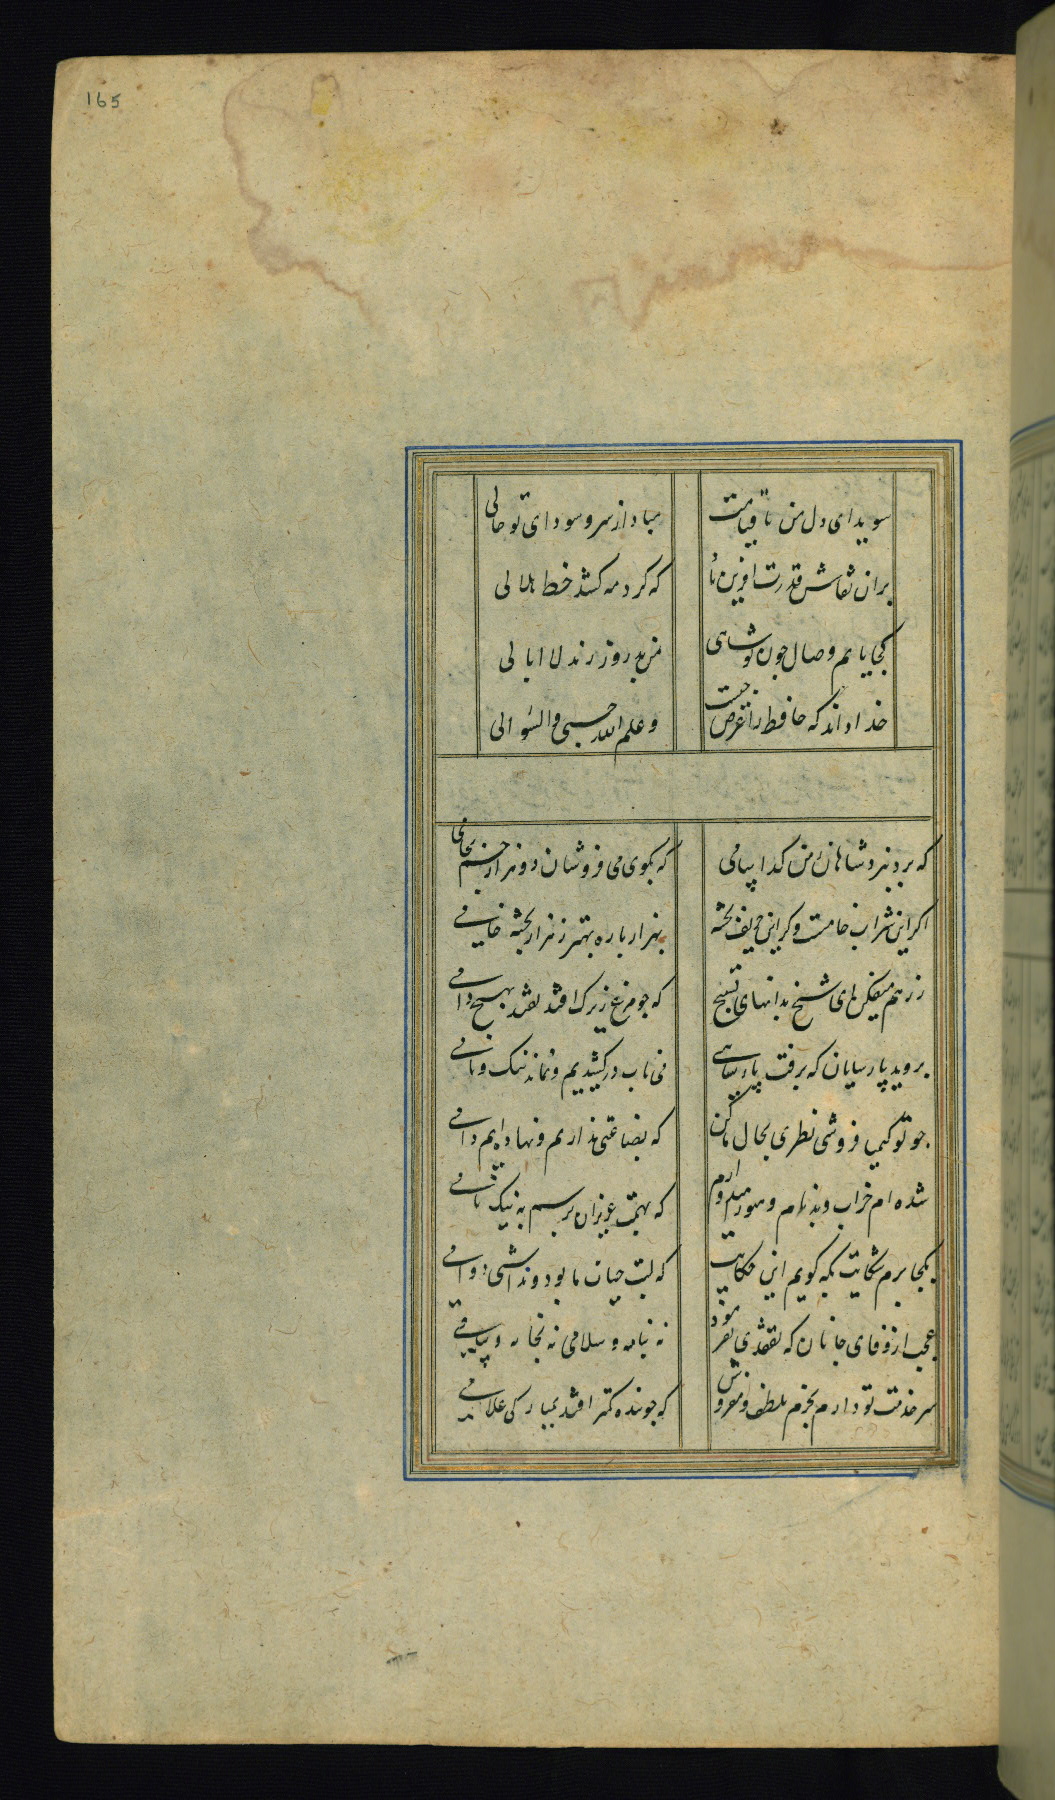 165
سویدای دل من تا قیامت مباد از سر و سودای تو خالی
بران نقاش قدرت افرین باد که کرد مه کشد خط هلالی
کجا یابم وصال چون تو شاهی من بد روز رند لاابالی
خدا داند که حافظ را غرض چیست و علم الله حسبی و السوالی
که برد بنزد شاهان ز من کدا پیامی که بکوی می فروشان دو هزار جم بجامی
اکر این شراب خامست و کر این حریف پخته بهزار باره بهتر ز هزار پخته خامی
ز رهم میفکن ای شیخ بدانهای تسبیح که جو مرغ زیرک افتد نفتد بهیچ دامی
بروید پارسایان که برفت پارسایی می ناب درکشیدیم و نماند ننک و نامی
جو تو کیمیا فروشی نظری بحال ما کن که بضاعتی نداریم و نهاده ایم دامی
شده ام خراب و بدنام و هنوز امیدوارم که بهمت عزیزان برسم به نیک نامی
بکجا برم شکایت بکه کویم این حکایت که لبت حیات ما بود و نداشتی دوامی
عجب از وفای جانان که تفقدی نفرمود نه بنامه و سلامی نه بخامه و پیامی
سر خدمت تو دارم بخرم بلطف و مفروش که جو بنده کمتر افتد بمبارکی غلامی